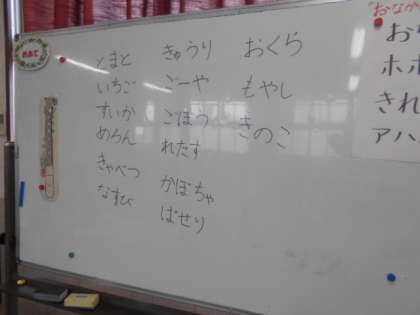 とまと
いちご
すいか
めろん
きゃべつ
なすび
きゅうり
ごーや
ごぼう
れたす
かぼちゃ
ぱせり
おくら
もやし
きのこ
おなか
お
ホ
きれ
アハ